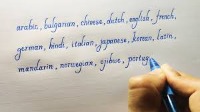 arabic, bulgarian, chinese, dutch, english, french,
german, hindi, italian, japanese, korean, latin,
mandarin, norwegian, ojibwe, portug